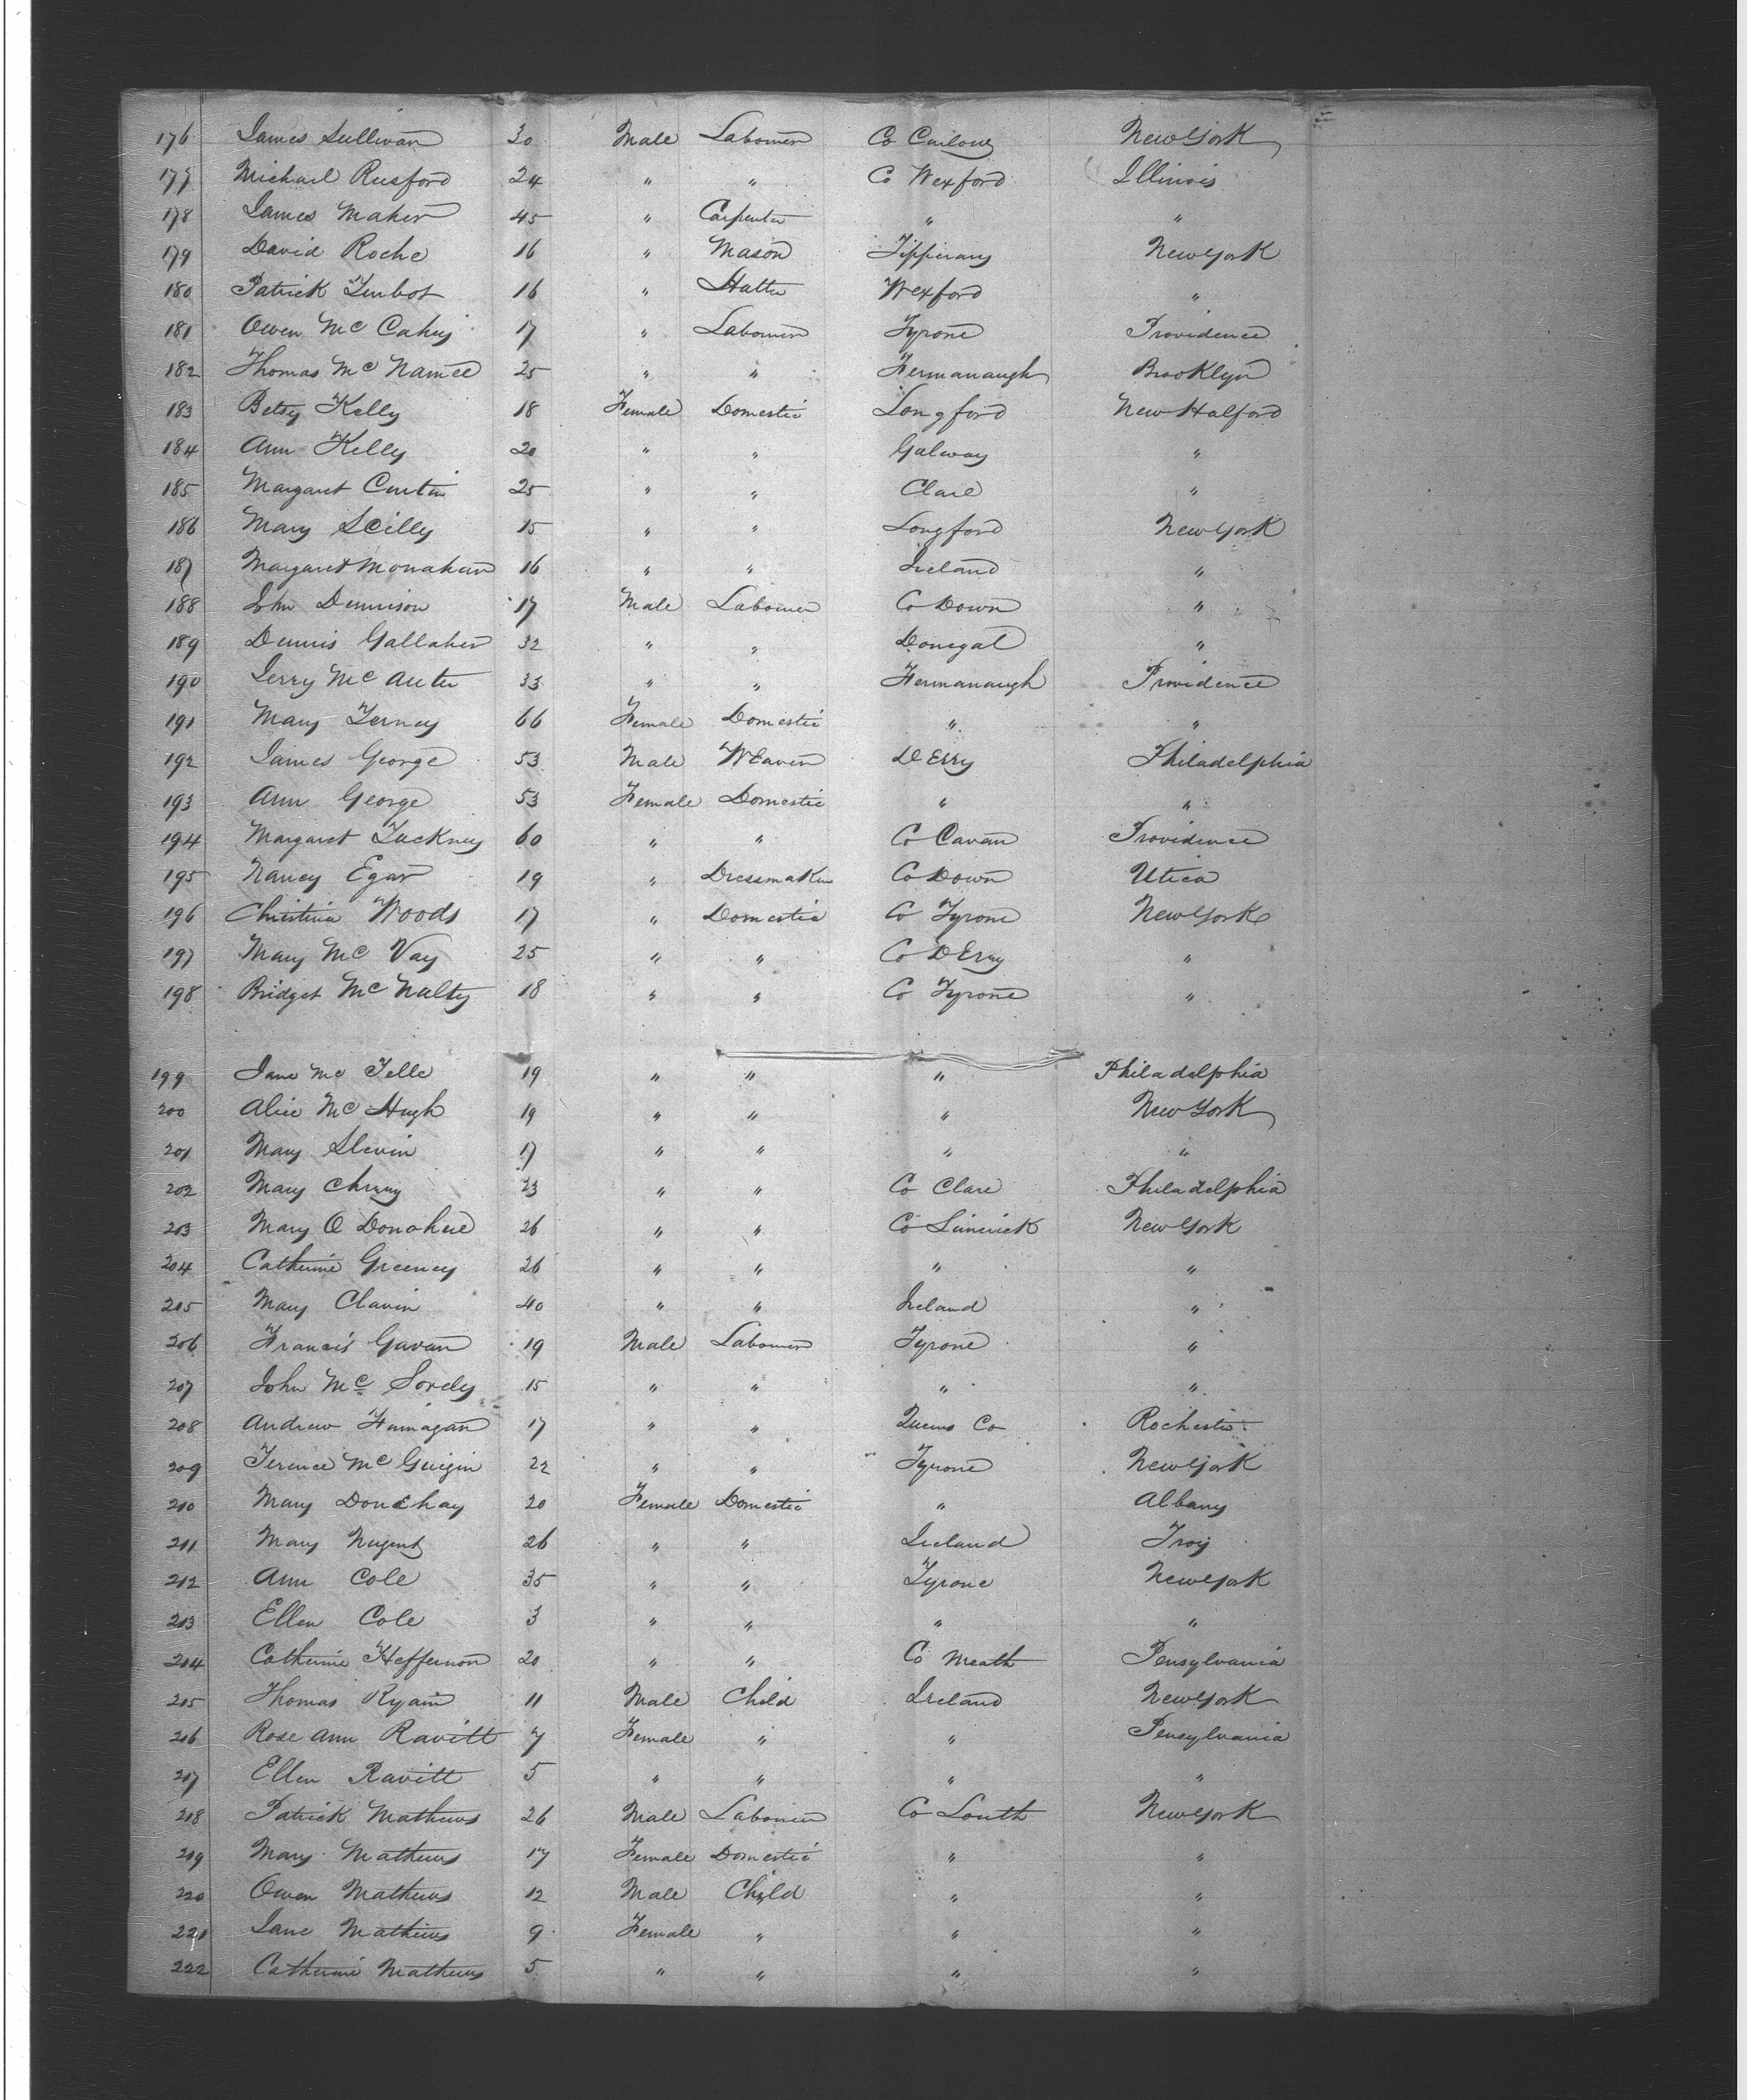 176 James Sullivan 30 Male Labourer Co Carlow New York
177 Michael Rusford 24 " " Co Wexford Illinois
178 James Maher 45 " Carpenter " "
179 David Roche 16 " Mason Tipperary New York
180 Patrick Turbot 16 " Hatter Wexford "
181 Owen Mc Cahey 17 " Labourer Tyrone Providence
182 Thomas Mc Namee 25 " " Fermanaugh Brooklyn
183 Betsy Kelly 18 Female Domestic Longford New Halford
184 Ann Kelly 20 " " Galway "
185 Margaret Curtin 25 " " Clare "
186 Mary Scilly 15 " " Longford New York
187 Margaret Monahan 16 " " Ireland "
188 John Dennison 17 Male Labourer Co Down "
189 Dennis Gallaher 32 " " Donegal "
190 Jerry Mc 33 " " Fermanaugh Providence
191 Mary Terney 66 Female Domestic " "
192 James George 53 Male Weaver Derry Philadelphia
193 Ann George 53 Female Domestic " "
194 Margaret Luckney 60 " " Co Cavan Providence
195 Nancy Egar 19 " Dressmaker Co Down Utica
196 Christina Woods 17 " Domestic Co Tyrone New York
197 Mary Mc Vay 25 " " Co Derry "
198 Bridget Mc Nulty 18 " " Co Tyrone "
199 Jane Mc 19 " " " Philadelphia
200 Alice Mc Hugh 19 " " " New York
201 Mary Slevin 17 " " " "
202 Mary 23 " " Co Clare Philadelphia
203 Mary O Donohue 26 " " Co Limerick New York
204 Catherine Greeney 26 " " " "
205 Mary Clavin 40 " " Ireland "
206 Francis Gavan 19 Male Labourer Tyrone "
207 John Mc Sorely 15 " " " "
208 Andrew Finnagan 17 " " Queens Co Rochester
209 Terence Mc Guigin 22 " " Tyrone New York
210 Mary Donehay 20 Female Domestic " Albany
211 Mary Nugent 26 " " Ireland Troy
212 Ann Cole 35 " " Tyrone New York
213 Ellen Cole 3 " " " "
214 Catherine Heffernon 20 " " Co Meath Pensylvania
215 Thomas Ryain 11 Male Child Ireland New York
216 Rose Ann Ravitt 7 Female " " Pensylvania
217 Ellen Ravitt 5 " " " "
218 Patrick Mathews 26 Male Labourer Co Louth New York
219 Mary Mathews 17 Female Domestic " "
220 Owen Mathews 12 Male Child " "
221 Jane Mathews 9 Female " " "
222 Catherine Mathews 5 " " " "